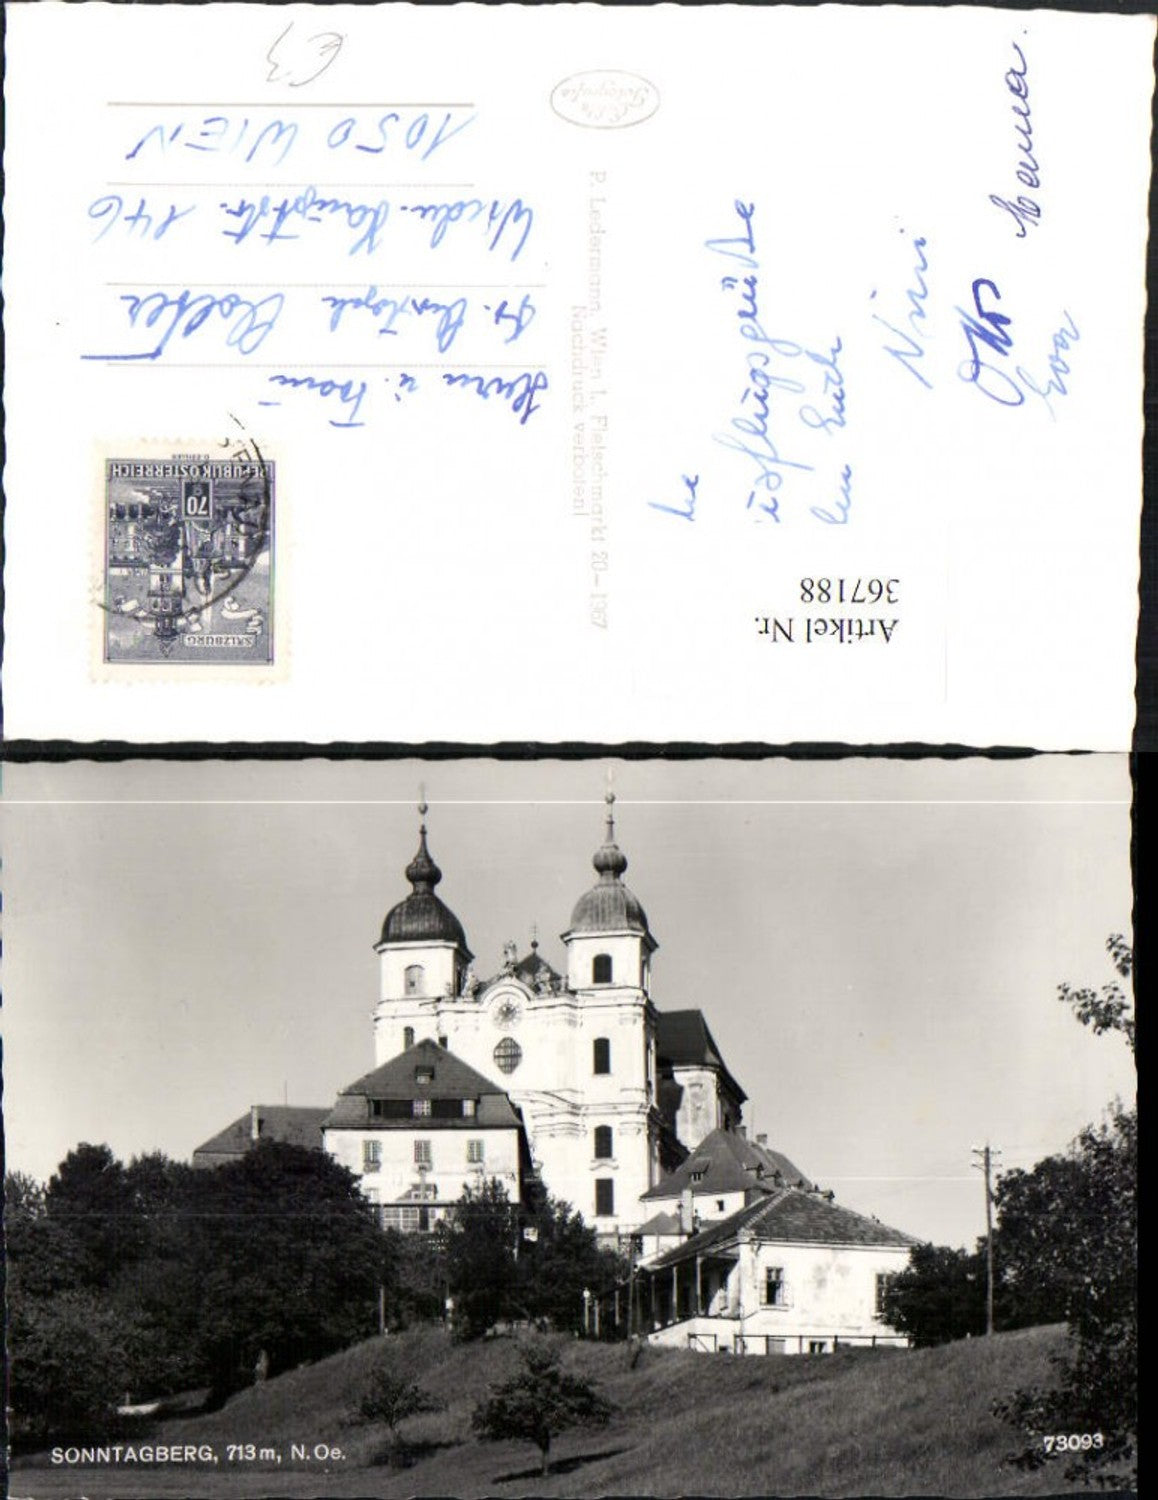 €3
Echte
Fotografie
1050 WIEN
Wiedn. Hauptstr. 146
Dr. Christoph
Herrn u. Frau
P. Ledermann, Wien I., Fleischmarkt 20 – 1967
Nachdruck verboten!
REPUBLIK ÖSTERREICH
70
SALZBURG
Ausflugsgrüße
Euch
Mimi
Otto
Eva
Artikel Nr.
367188
SONNTAGBERG, 713 m, N. Oe.
73093